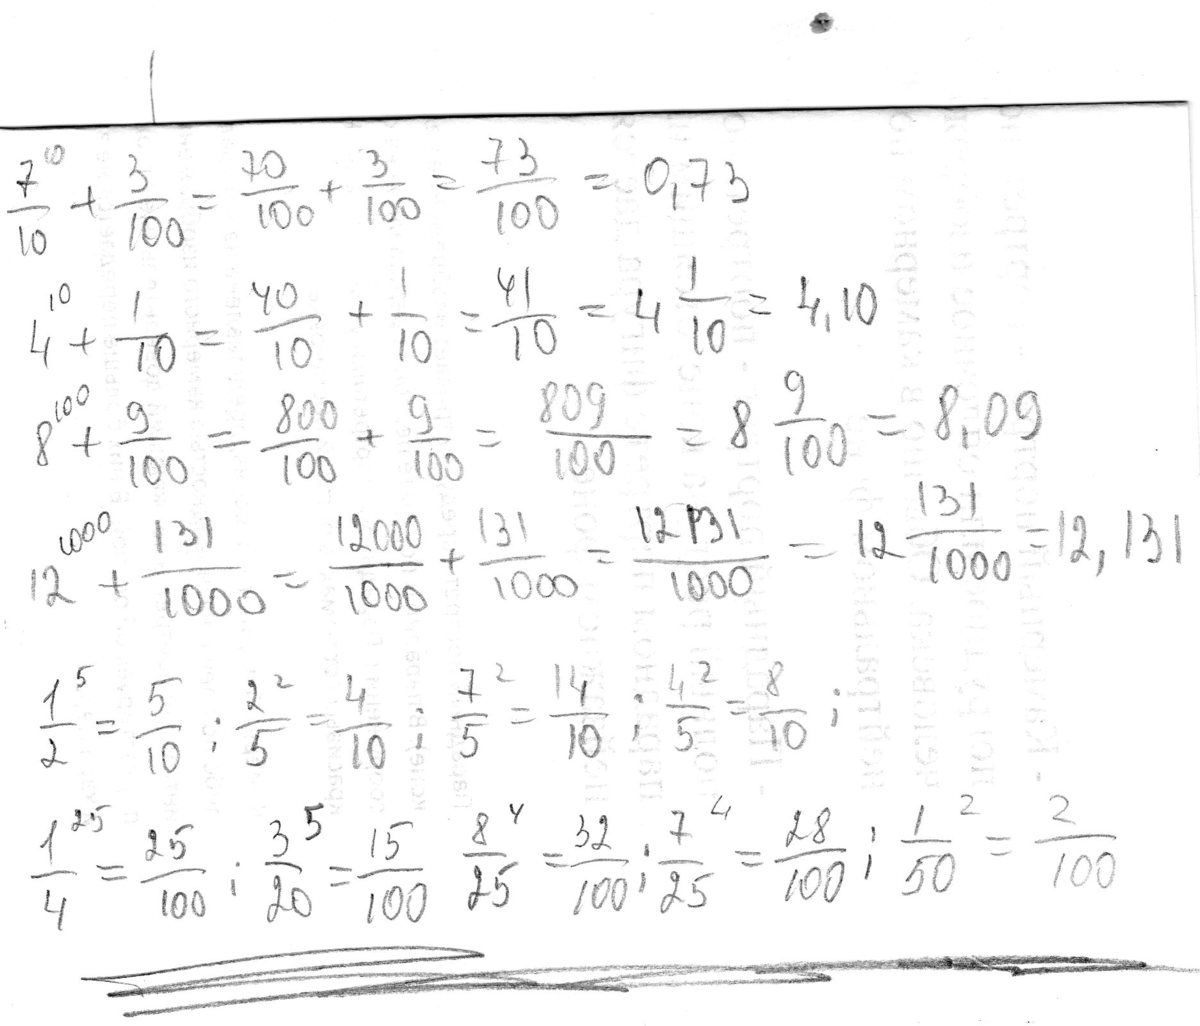 7^10/10 + 3/100 = 70/100 + 3/100 = 73/100 = 0,73
4^10 + 1/10 = 40/10 + 1/10 = 41/10 = 4 1/10 = 4,10
8^100 + 9/100 = 800/100 + 9/100 = 809/100 = 8 9/100 = 8,09
12^1000 + 131/1000 = 12000/1000 + 131/1000 = 12131/1000 = 12 131/1000 = 12,131
1^5/2 = 5/10 ; 2^2/5 = 4/10 ; 7^2/5 = 14/10 ; 4^2/5 = 8/10 ;
1^25/4 = 25/100 ; 3^5/20 = 15/100 8^4/25 = 32/100 ; 7^4/25 = 28/100 ; 1^2/50 = 2/100